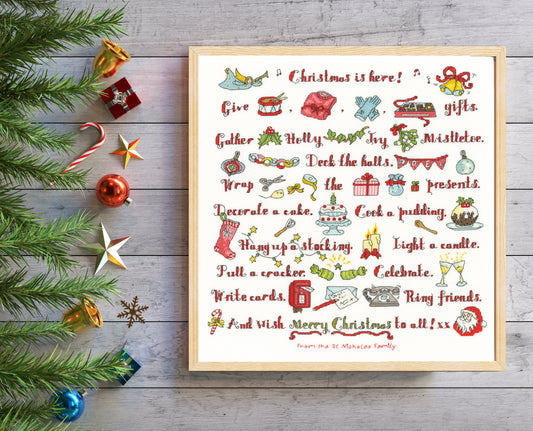 Christmas is here!
Give , , , gifts.
Gather Holly Ivy Mistletoe.
Deck the halls.
Wrap the presents.
Decorate a cake. Cook a pudding.
Hang up a stocking. Light a candle.
Pull a cracker. Celebrate.
Write cards. Ring friends.
And Wish Merry Christmas to all! xx
From the St Makales Family